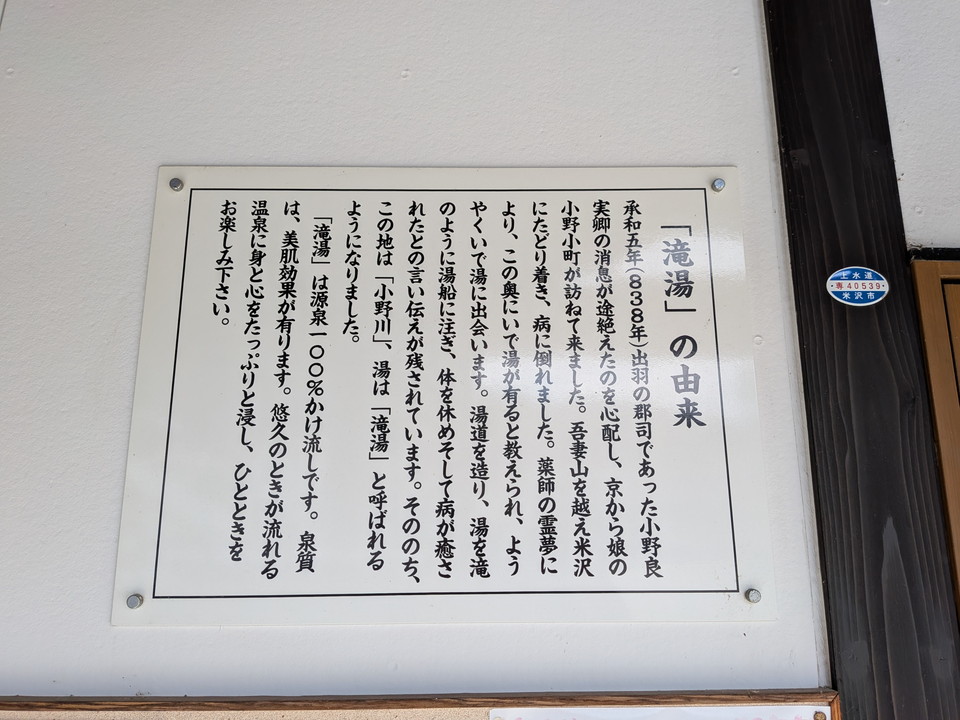 「滝湯」の由来
承和五年(838年)出羽の郡司であった小野良
実卿の消息が途絶えたのを心配し、京から娘の
小野小町が訪ねて来ました。吾妻山を越え米沢
にたどり着き、病に倒れました。薬師の霊夢に
より、この奥にいで湯が有ると教えられ、よう
やくいで湯に出会います。湯道を造り、湯を滝
のように湯船に注ぎ、体を休めそして病が癒さ
れたとの言い伝えが残されています。そののち、
この地は「小野川」、湯は「滝湯」と呼ばれる
ようになりました。
「滝湯」は源泉一〇〇%かけ流しです。泉質
は、美肌効果が有ります。悠久のときが流れる
温泉に身と心をたっぷりと浸し、ひとときを
お楽しみ下さい。
上水道
専40539
米沢市